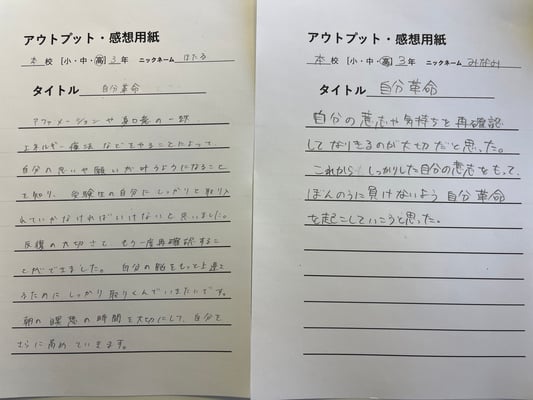 アウトプット・感想用紙
本 校 [小・中・高] 3 年 ニックネーム ほたる
タイトル 自分革命
アファメーションや真口発の一跡
エネルギー療法などをやることによって
自分の思いや願いが叶うようになること
を知り、受験生の自分にしっかりと取り入
れていかなければいけないと思いました。
反復の大切さを もう一度再確認するこ
とができました。自分の脳をもっと上達さ
ふためにしっかり取りくんでいきたいです。
朝の瞑想の時間を大切にして、自分を
さらに高めていきます。
アウトプット・感想用紙
本 校 [小・中・高] 3 年 ニックネーム みなみ
タイトル 自分革命
自分の意志や気持ちを再確認
してなりきるのが大切だと思った。
これから しっかりした自分の意志をもって、
ぼんのうに負けないよう 自分革命
を起こしていこうと思った。